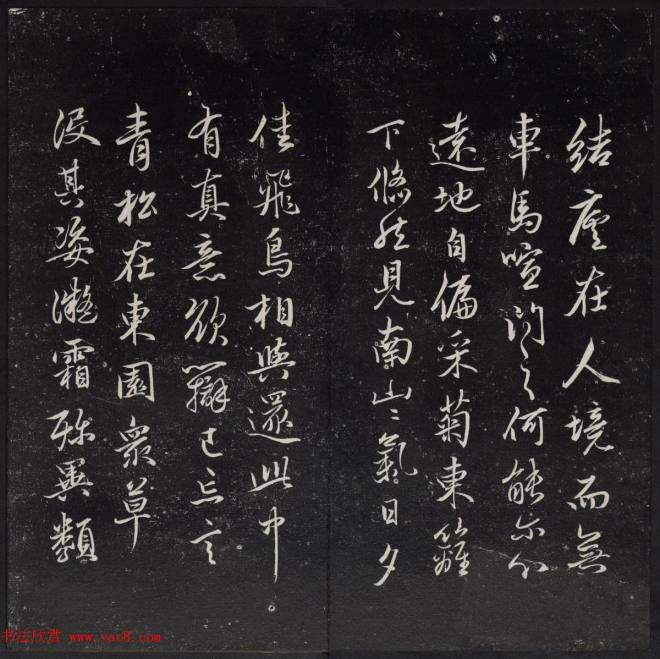 結廬在人境而無
車馬喧問君何能尔心
遠地自偏采菊東籬
下悠然見南山〻氣日夕
佳飛鳥相與還此中
有真意欲辯已忘言
青松在東園眾草
没其姿凝霜殄異類
书法欣赏 www.yac8.com